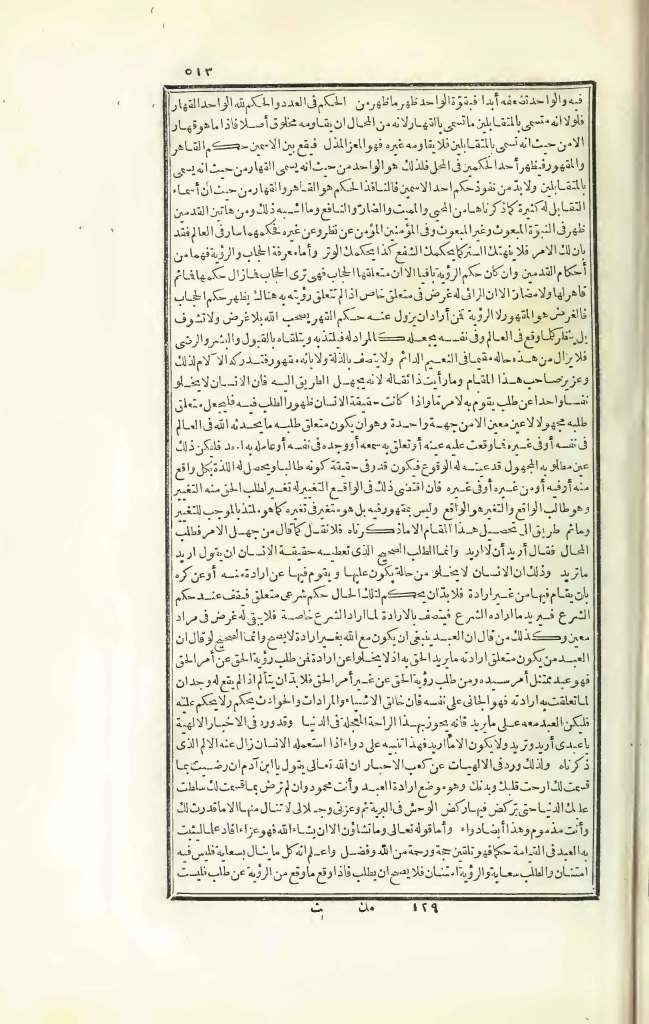 ٥١٣
فيه والواحد تضعفه أبدا فبقوة الواحد ظهر ما ظهر من الحكم فى العدد والحكم لله الواحد القهار
فلولا انه تسمى بالمتقابلين ما تسمى بالقهار لانه من المحال ان يقاومه مخلوق أصلا فاذا ما هو قهار
الا من حيث انه تسمى بالمتقابلين فلا يقاومه غيره فهو المعز المذل فيقع بين الاسمين حكم القاهر
والمقهور فيظهر أحد الحكمين فى المحل فلذلك هو الواحد من حيث انه يسمى القهار من حيث انه يسمى
بالمتقابلين ولا بد من نفوذ حكم احد الاسمين فالنافذ الحكم هو القاهر والقهار من حيث ان أسماء
التقابل له كثيرة كما ذكرناها من المحيى والمميت والضار والنافع وما اشبه ذلك ومن هاتين القدمين
ظهر فى النبوة المبعوث وغير المبعوث وفى المؤمنين المؤمن عن نظر وعن غيره فحكمهما سار فى العالم فقد
بان لك الامر فلا ينهتك الستر كما يحكمك الشفع كذا يحكمك الوتر وأما معرفة الحجاب والرؤية فهما من
أحكام القدمين وان كان حكم الرؤية باقيا الا ان متعلقها الحجاب فهى ترى الحجاب فما زال حكمها فما ثم
قاهر لها ولا مضاد الا ان الرائى له غرض فى متعلق خاص اذا لم تتعلق رؤيته به هناك يظهر حكم الحجاب
فالغرض هو المقهور لا الرؤية فمن أراد ان يزول عنه حكم القهر يصحب الله بلا غرض ولا تشوف
بل ينظر كل ما وقع فى العالم وفى نفسه يجعله كالمراد له فيلتذ به ويتلقاه بالقبول والبشر والرضى
فلا يزال من هذه حاله مقيما فى النعيم الدائم ولا يتصف بالذلة ولا بانه مقهور فتدركه الآلام لذلك
وعزيز صاحب هذا المقام وما رأيت ذائقا له لانه يجهل الطريق اليه فان الانسان لا يخلو
نفسا واحدا عن طلب يقوم به لامر ما واذا كانت حقيقة الانسان ظهور الطلب فيه فليجعل متعلق
طلبه مجهولا لا عين معين الا من جهة واحدة وهو ان يكون متعلق طلبه ما يحدثه الله فى العالم
فى نفسه أو فى غيره فما وقعت عليه عينه أو تعلق به سمعه أو وجده فى نفسه أو عامله به احد فليكن ذلك
عين مطلوبه المجهول قد عينه له الوقوع فيكون قد وفى حقيقة كونه طالبا ويحصل له اللذة بكل واقع
منه أو فيه أو من غيره أو فى غيره فان اقتضى ذلك فى الواقع التغير له تغير لطلب الحق منه التغيير
وهو طالب الواقع والتغير هو الواقع وليس بمقهور فيه بل هو متغير فى تغيره كما هو ملتذ بالموجب للتغير
وما ثم طريق الى تحصيل هذا المقام الا ما ذكرناه فلا نقل كما قال من جهل الامر فطلب
المحال فقال أريد أن لا اريد وانما الطلب الصحيح الذى تعطيه حقيقة الانسان ان يقول اريد
ما تريد وذلك ان الانسان لا يخلو من حالة يكون عليها ويقوم فيها عن ارادة منه أو عن كره
بان يقام فيها من غير ارادة فلا بد ان يحكم لتلك الحال حكم شرعى متعلق فيقف عند حكم
الشرع فيريد ما اراده الشرع فيتصف بالارادة لما اراد الشرع خاصة فلا يبقى له غرض فى مراد
معين وكذلك من قال ان العبد ينبغى ان يكون مع الله بغير ارادة لا يصح وانما الصحيح لو قال ان
العبد من يكون متعلق ارادته ما يريد الحق به اذ لا يخلو عن ارادة فمن طلب رؤية الحق عن أمر الحق
فهو عبد ممتثل أمر سيده ومن طلب رؤية الحق عن غير أمر الحق فلا بد ان يتألم اذ لم يقع له وجدان
لما تعلقت به ارادته فهو الجانى على نفسه فان خالق الاشياء والمرادات والحوادث يحكم ولا يحكم عليه
فليكن العبد معه على ما يريد فانه يحوز بهذا الراحة المعجلة فى الدنيا وقد ورد فى الاخبار الالهية
يا عبدى أريد وتريد ولا يكون الا ما أريد فهذا تنبيه على دواء اذا استعمله الانسان زال عنه الالم الذى
ذكرناه ولذلك ورد فى الالهيات عن كعب الاحبار ان الله تعالى يقول يا ابن آدم ان رضيت بما
قسمت لك ارحت قلبك وبدنك وهو موضع ارادة العبد وأنت محمود وان لم ترض بما قسمت لك سلطت
عليك الدنيا حتى تركض فيها ركض الوحش فى البرية ثم وعزتى وجلالى لا تنال منها الا ما قدرت لك
وأنت مذموم وهذا أيضا دواء وأما قوله تعالى وما تشاؤن الا ان يشاء الله فهو عزاء أفاد علما ليثبت
به العبد فى القيامة حكما فهو تلقين حجة ورحمة من الله وفضل واعلم انه كل ما ينال بسعاية فليس فيه
امتنان والطلب سعاية والرؤية امتنان فلا يصح ان يطلب فاذا وقع ما وقع من الرؤية عن طلب فليست
١٢٩ مك نى